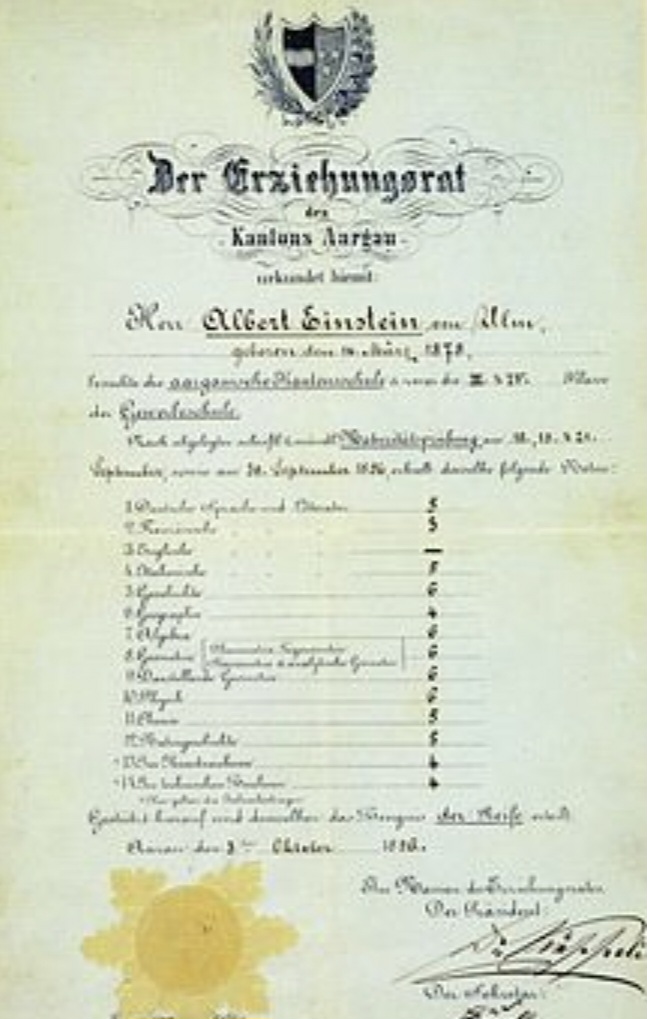 Der Erziehungsrat
des
Kantons Aargau
urkundet hiemit:
Herr Albert Einstein von Ulm,
geboren den 14. März 1879,
besuchte die aargauische Kantonsschule & zwar die III. & IV. Klasse
der Gewerbeschule.
Nach abgelegter schriftl. & mündl. Maturitätsprüfung am 18., 19. & 21.
September, sowie am 30. September 1896, erhielt derselbe folgende Noten:
1. Deutsche Sprache und Litteratur 5
2. Französische " " " 3
3. Englische " " " —
4. Italienische " " " 5
5. Geschichte 6
6. Geographie 4
7. Algebra 6
8. Geometrie (Planimetrie, Trigonometrie, Stereometrie & analytische Geometrie) 6
9. Darstellende Geometrie 6
10. Physik 6
11. Chemie 5
12. Naturgeschichte 5
* 13. Im Kunstzeichnen 4
* 14. Im technischen Zeichnen 4
* Hier gelten die Jahresleistungen.
Gestützt hierauf wird demselben das Zeugnis der Reife erteilt.
Aarau den 3ten Oktober 1896.
Im Namen des Erziehungsrates
Der Präsident:
Der Sekretär: